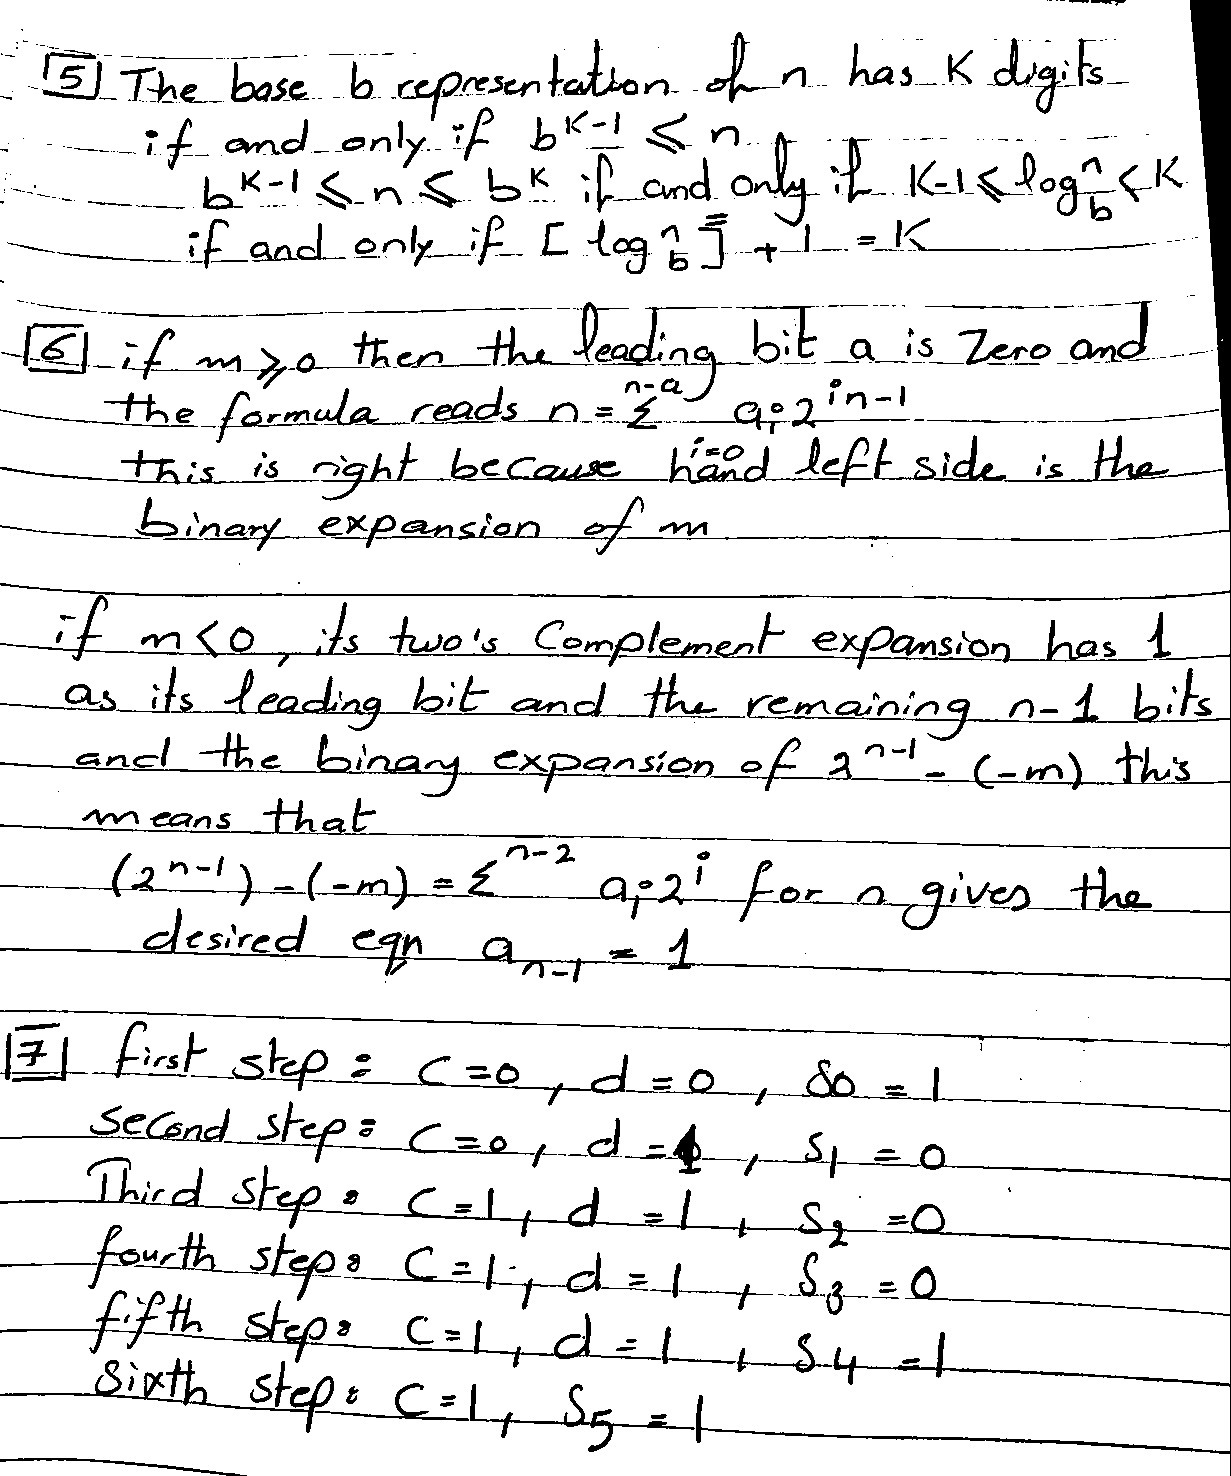 5 The base b representation of n has K digits
if and only if b^{K-1} ⩽ n
b^{K-1} ⩽ n ⩽ b^K if and only if K-1 ⩽ log_b^n < K
if and only if [log_b^n] + 1 = K
6 if m ⩾ 0 then the leading bit a is Zero and
the formula reads n = Σ_{i=0}^{n-a} a_i 2^{in-1}
this is right because hand left side is the
binary expansion of m
if m < 0, its two's Complement expansion has 1
as its leading bit and the remaining n-1 bits
and the binary expansion of 2^{n-1} - (-m) this
means that
(2^{n-1}) - (-m) = Σ^{n-2} a_i 2^i for n gives the
desired eqn a_{n-1} = 1
7 first step: C=0, d=0, S0 = 1
Second step: C=0, d=1, S_1 = 0
Third step: C=1, d=1, S_2 = 0
fourth step: C=1, d=1, S_3 = 0
fifth step: C=1, d=1, S4 = 1
Sixth step: C=1, S_5 = 1